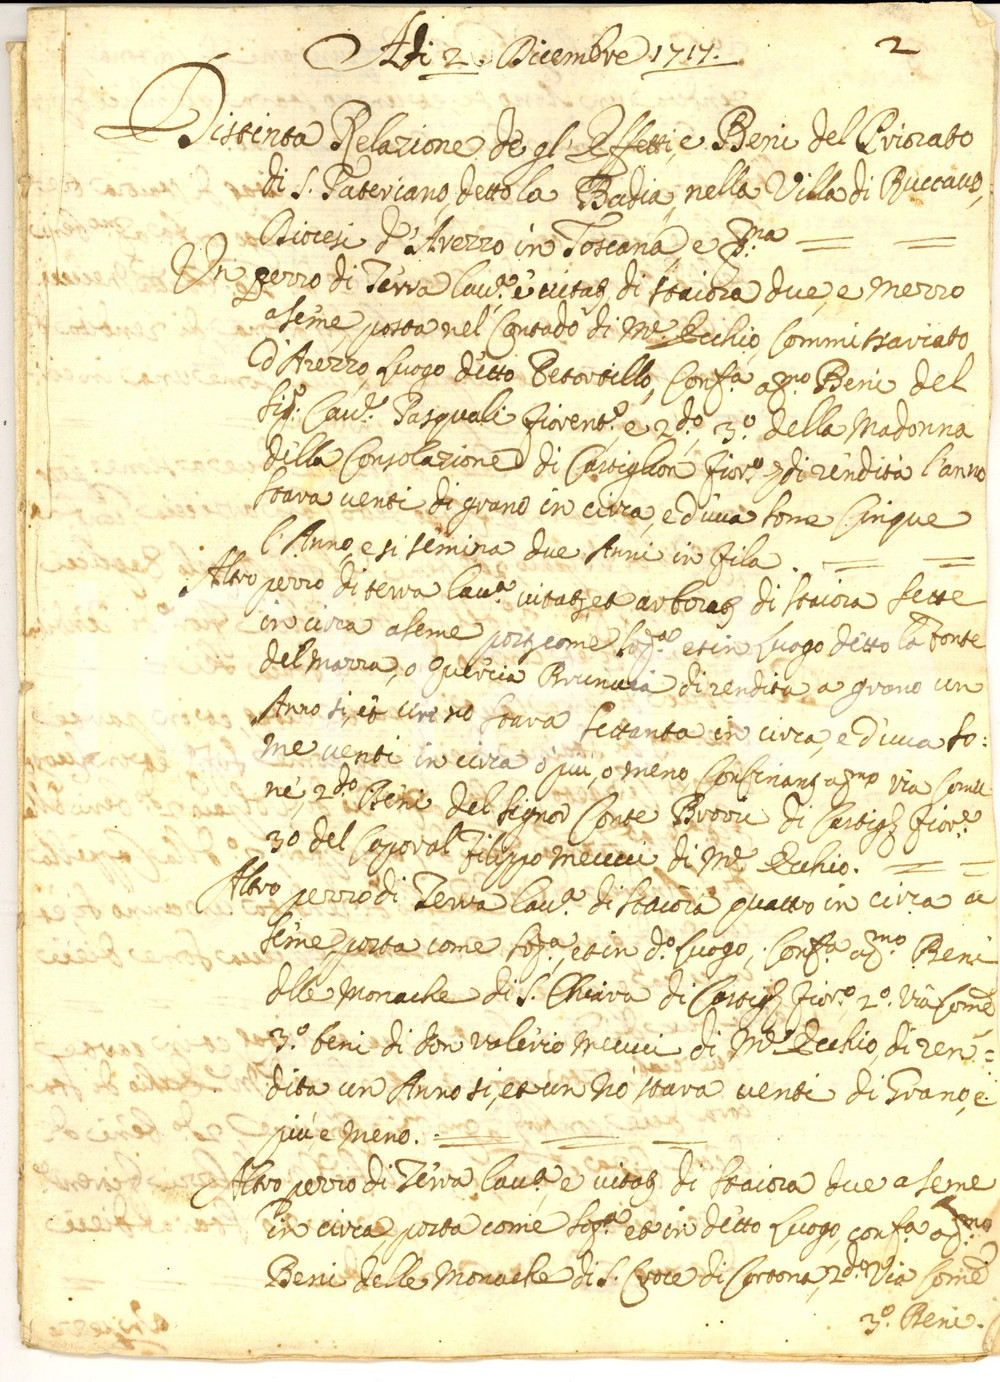 Adi 2. Dicembre 1717.
2
Distinta Relazione de gl' Effetti, e Beni del Priorato
di S. Pateriano, detto la Badia, nella Villa di Buccaus,
Diocesi d'Arezzo in Toscana, e P.ma
Un pezzo di Terra lau.a e vitat.a di staiora due, e mezzo
a seme, posta nel Contado di M.e Ecchio, Commissariato
d'Arezzo, Luogo detto Petortillo, Conf.a a p.mo Beni del
Sig.r Cau.r Pasquali fiorent.o e 2.do 3.o della Madonna
della Consolazione di Castiglion fior.o di rendita l'anno
stara venti di grano in circa, e d'uua some Cinque
l'Anno, e si semina due Anni in fila.
Altro pezzo di terra lau.a vitat.a et arborat.a di staiora sette
in circa a seme posta come sop.a et in Luogo detto la Fonte
del Marra, o Quercia Brunuia di rendita a grano un
Anno si, et uno no stara settanta in circa, e d'uua so:
me venti in circa o più, o meno, Confinant.e a p.mo via Comu
ne, 2.do Beni del Signor Conte Brovii di Castig.e fior.o
3.o del Caporal Filippo Meucci di M.e Ecchio.
Altro pezzo di Terra lau.a di staiora quattro in circa a
seme, posta come sop.a, et in d.o Luogo, Conf.a a p.mo Beni
delle Monache di S. Chiara di Castig.e fior.o 2.o Via Come
3.o beni di Don Valerio Meucci di M.e Ecchio, di ren=
dita un Anno si, et un no stara venti di Grano, e
più e meno.
Altro pezzo di Terra lau.a e vitat.a di staiora due a seme
in circa posta come sop.a et in detto Luogo, conf.a a p.mo
Beni delle Monache di S. Croce di Cortona, 2.do Via Come
3.o Beni.